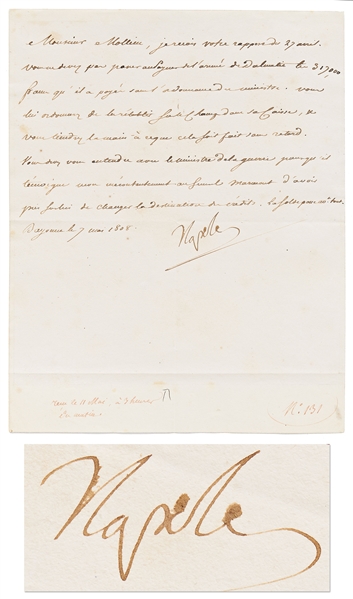 Monsieur Mollien, je reçois votre rapport du 27 avril.
Vous ne devez pas passer au payeur de l'armée de Dalmatie les 317000
francs qu'il a payé sans l'ordonnance du ministre. vous
lui ordonnerez de les rétablir sur le champ dans sa Caisse, &
vous tiendrez la main à ce que cela soit fait sans retard.
Vous devez vous entendre avec le ministre de la guerre pour qu'il
témoigne mon mécontentement au Général Marmont d'avoir
pris sur lui de changer la destination des crédits. la Solde
Bayonne le 7 mai 1808.
Napole
reçu le 11 Mai à 7 heures
du matin.
N.º 131
Napole